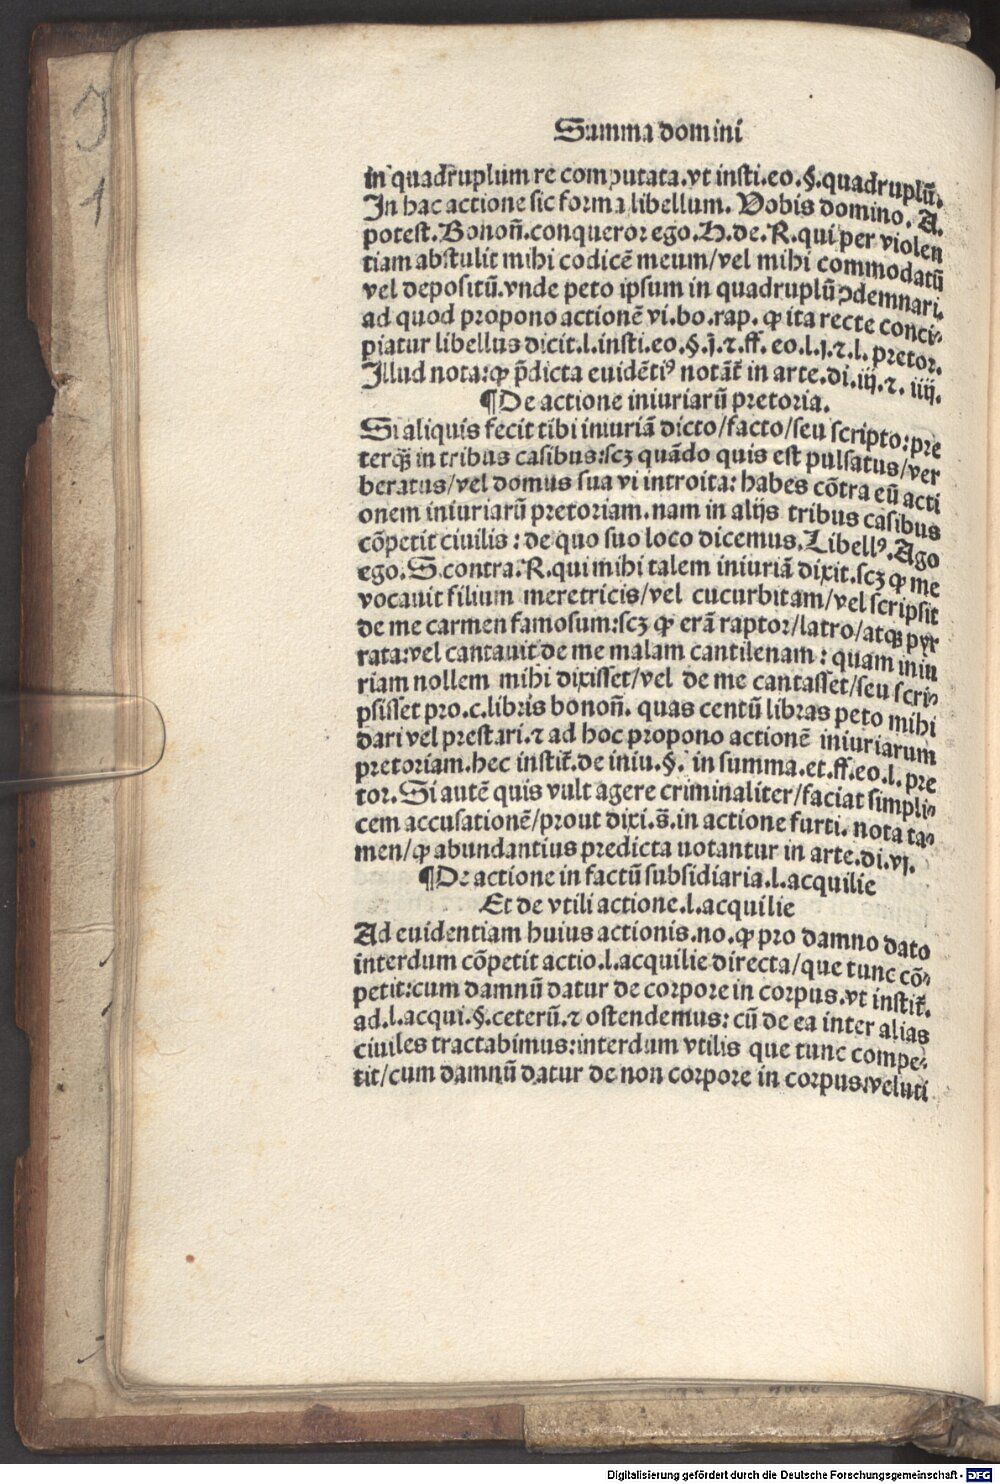 Summa domini
in quadruplum re computata.vt insti.eo.§.quadruplū.
In hac actione sic forma libellum. Vobis domino. A.
potest. Bonoñ.conqueror ego.H.de.R.qui per violen
tiam abstulit mihi codicē meum/vel mihi commodatū
vel depositū.vnde peto ipsum in quadruplū ꝯdemnari.
ad quod propono actionē vi.bo.rap. ꝙ ita recte conci⸗
piatur libellus dicit.l.insti.eo.§.j.⁊.ff. eo.l.j.⁊.l. pretor.
Illud nota:ꝙ p̄dicta euidētiꝰ notāt̄ in arte.di.iij.⁊. iiij.
¶De actione iniuriarū pretoria.
Si aliquis fecit tibi iniuriā dicto/facto/seu scripto:pre
terq̄ꝫ in tribus casibus:scꝫ quādo quis est pulsatus/ver
beratus/vel domus sua vi introita: habes cōtra eū acti
onem iniuriarū pretoriam.nam in alijs tribus casibus
cōpetit ciuilis: de quo suo loco dicemus.Libellꝰ.Ago
ego.S.contra.R.qui mihi talem iniuriā dixit.scꝫ ꝙ me
vocauit filium meretricis/vel cucurbitam/vel scripsit
de me carmen famosum:scꝫ ꝙ erā raptor/latro/atqꝫ pyr
rata:vel cantauit de me malam cantilenam: quam iniu
riam nollem mihi dixisset/vel de me cantasset/seu scri⸗
psisset pro.c.libris bonoñ. quas centū libras peto mihi
dari vel prestari.⁊ ad hoc propono actionē iniuriarum
pretoriam.hec instit̄.de iniu.§. in summa.et.ff.eo.l. pre
tor.Si autē quis vult agere criminaliter/faciat simpli⸗
cem accusationē/prout dixi.s̄.in actione furti. nota ta⸗
men/ꝙ abundantius predicta uotantur in arte.di.vj.
¶De actione in factū subsidiaria.l.acquilie
Et de vtili actione.l.acquilie
Ad euidentiam huius actionis.no.ꝙ pro damno dato
interdum cōpetit actio.l.acquilie directa/que tunc cō⸗
petit:cum damnū datur de corpore in corpus.vt instit̄.
ad.l.acqui.§.ceterū.⁊ ostendemus: cū de ea inter alias
ciuiles tractabimus:interdum vtilis que tunc compe⸗
tit/cum damnū datur de non corpore in corpus:veluti
Digitalisierung gefördert durch die Deutsche Forschungsgemeinschaft - DFG